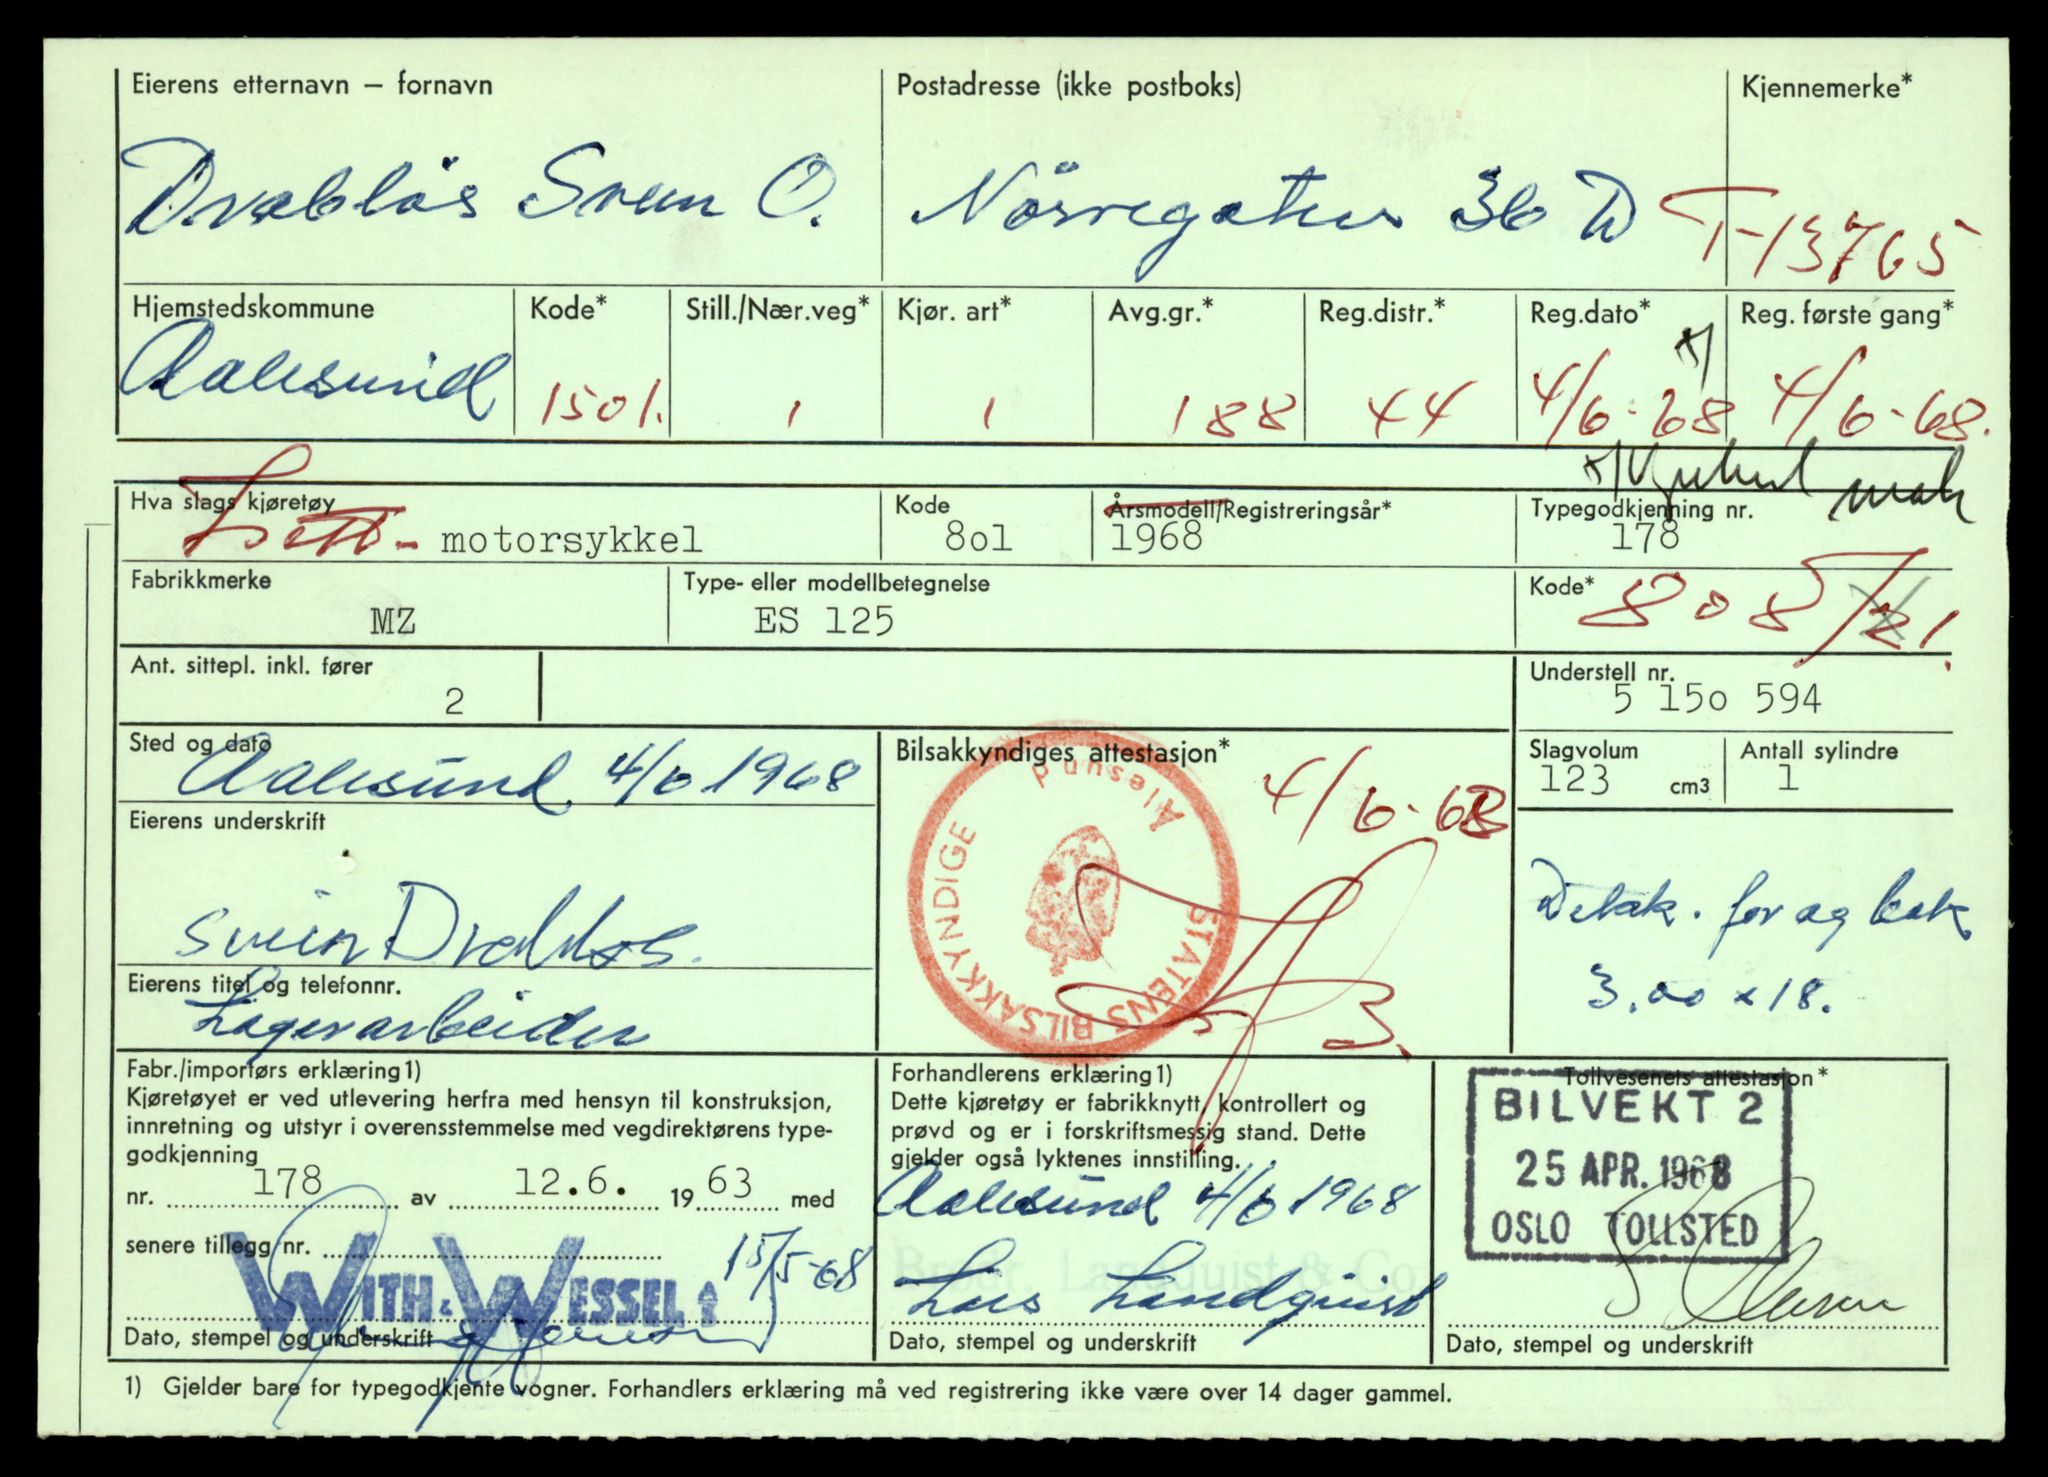 Eierens etternavn – fornavn
Postadresse (ikke postboks)
Kjennemerke*
Drabløs Svein O.
Nørregaten 36 D
T-13765
Hjemstedskommune
Kode*
Still./Nær.veg*
Kjør. art*
Avg.gr.*
Reg.distr.*
Reg.dato*
Reg. første gang*
Aalesund
1501.
1
1
188
44
4/6-68
x)
4/6-68.
x)
Hva slags kjøretøy
Kode
Årsmodell/Registreringsår*
Typegodkjenning nr.
Lett- motorsykkel
8o1
1968
178
Fabrikkmerke
Type- eller modellbetegnelse
Kode*
MZ
ES 125
808/21.
Ant. sittepl. inkl. fører
2
Understell nr.
5 15o 594
Sted og dato
Aalesund 4/6 1968
Bilsakkyndiges attestasjon*
4/6-68
STATENS BILSAKKYNDIGE
Ålesund
Slagvolum
Antall sylindre
123 cm3
1
Eierens underskrift
Svein Drabløs.
Dekk. for og bak
3.00 x 18.
Eierens titel og telefonnr.
Lagerarbeider
Fabr./importørs erklæring1)
Kjøretøyet er ved utlevering herfra med hensyn til konstruksjon,
innretning og utstyr i overensstemmelse med vegdirektørens type-
godkjenning
nr. 178 av 12.6. 19 63 med
senere tillegg nr.
15/5-68
WITH & WESSEL
Dato, stempel og underskrift
Forhandlerens erklæring1)
Dette kjøretøy er fabrikknytt, kontrollert og
prøvd og er i forskriftsmessig stand. Dette
gjelder også lyktenes innstilling.
Aalesund 4/6 1968
Brødr. Landquist & Co.
Lars Landquist
Dato, stempel og underskrift
Tollvesenets attestasjon*
BILVEKT 2
25 APR. 1968
OSLO TOLLSTED
Dato, stempel og underskrift
1) Gjelder bare for typegodkjente vogner. Forhandlers erklæring må ved registrering ikke være over 14 dager gammel.